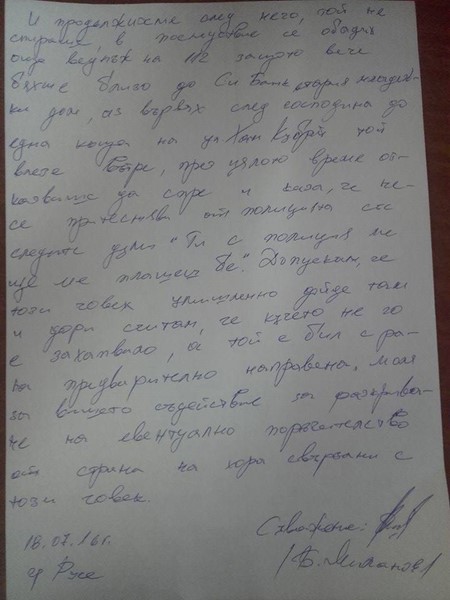 И продължихме след него, той не
спираше, в последствие се обадих
още веднъж на 112 защото вече
бяхме близо до Си Банк, втория младеж-
ки дом, аз вървях след господина до
една къща на ул. Хан Кубрат той
влезе вътре, през цялото време от-
казваше да спре и каза, че не
се притеснява от полицията със
следните думи "Ти с полиция ли
ще ме плашиш бе". Допускам, че
този човек умишлено дойде там
и дори считам, че кучето не го
е захапвало, а той е бил с ра-
на предварително направена, моля
за вашето съдействие за разкрива-
не на евентуално поръчителство
от страна на хора свързани с
този човек.
18.07.16г.
гр Русе